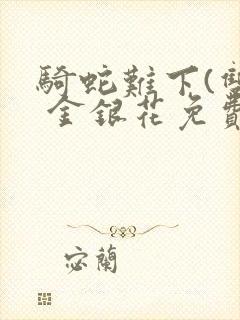 騎蛇難下(雙
金銀花免費
宓蘭